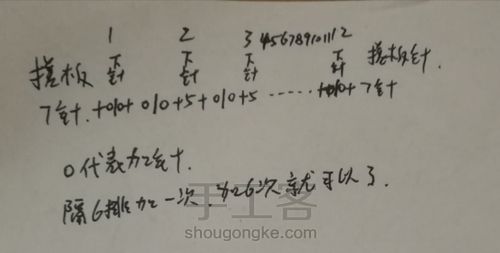 1 2 3 4 5 6 7 8 9 10 11 12
搓板 下针 下针 下针 下针 搓板针.
7针.+010+010+5+010+5……+010+7针
0代表加针.
隔6排加一次.加26次就可以了.
手工客
shougongke.com